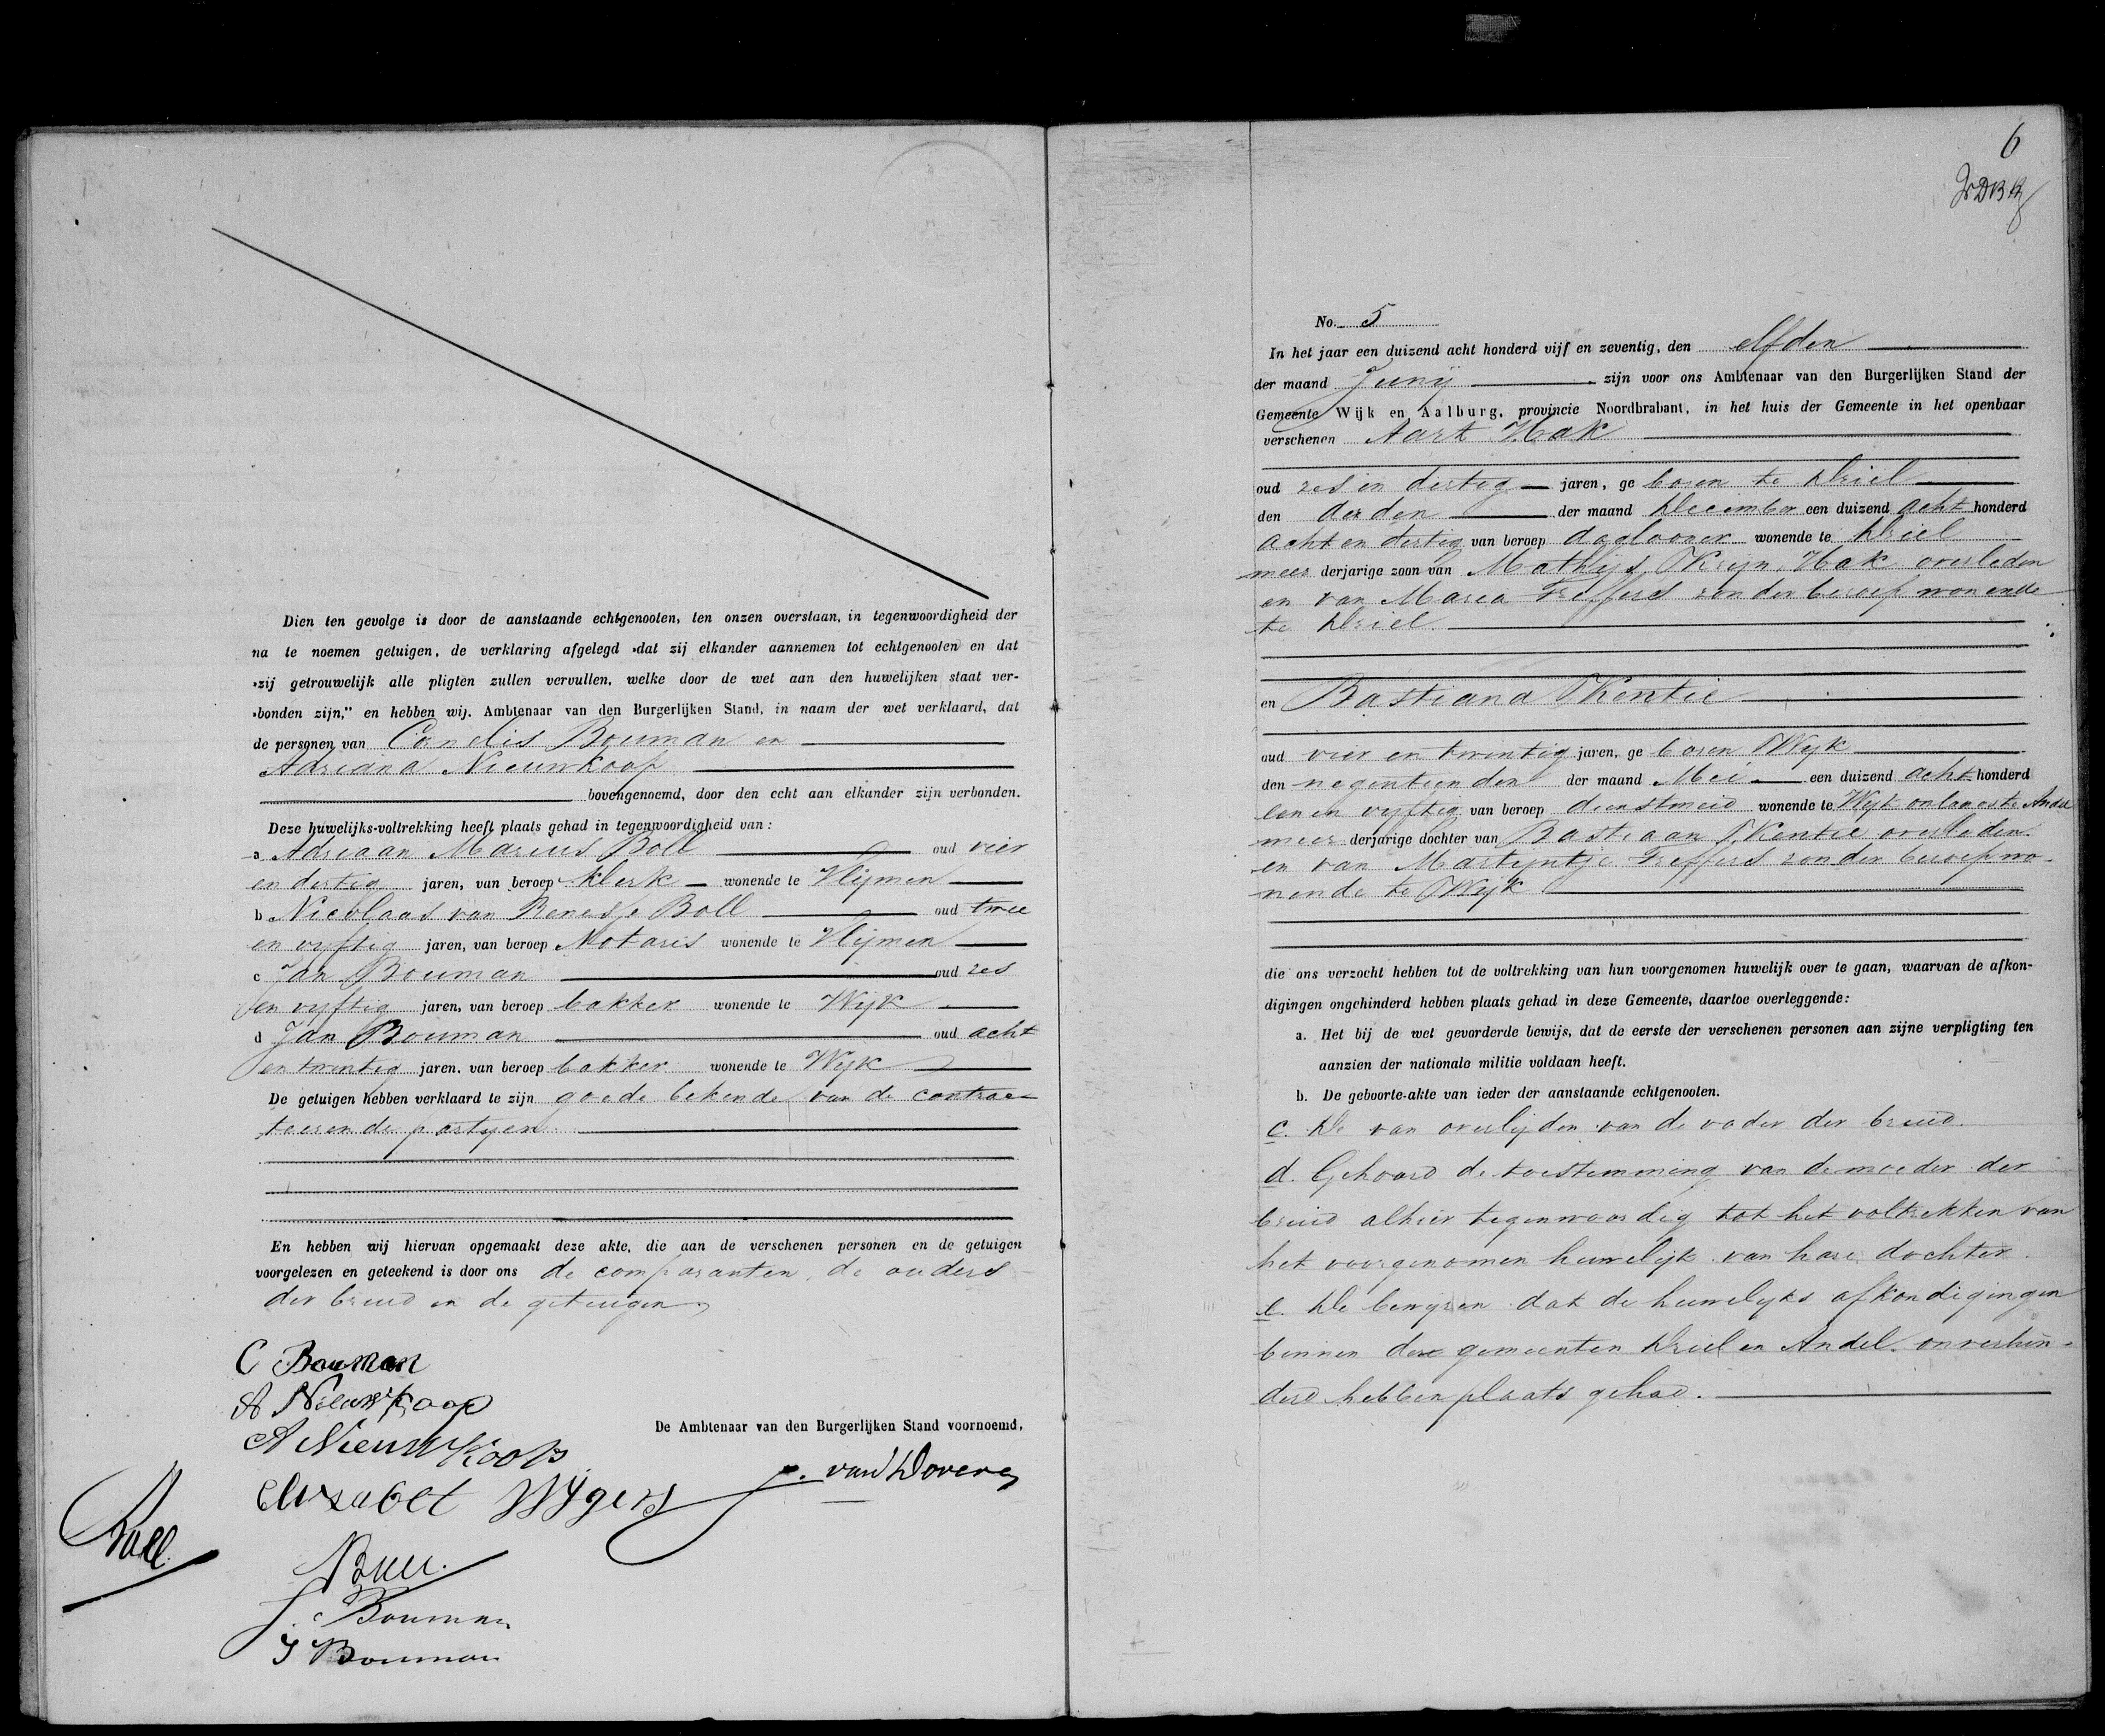 Dien ten gevolge is door de aanstaande echtgenooten, ten onzen overstaan, in tegenwoordigheid der
na te noemen getuigen, de verklaring afgelegd »dat zij elkander aannemen tot echtgenooten en dat
»zij getrouwelijk alle pligten zullen vervullen, welke door de wet aan den huwelijken staat ver-
»bonden zijn," en hebben wij, Ambtenaar van den Burgerlijken Stand, in naam der wet verklaard, dat
de personen van Cornelis Bouman en
Adriana Nieuwkoop
bovengenoemd, door den echt aan elkander zijn verbonden.
Deze huwelijks-voltrekking heeft plaats gehad in tegenwoordigheid van:
a Adriaan Marius Boll oud vier
en dertig jaren, van beroep klerk wonende te Vlijmen
b Nicolaas van Renesse Boll oud twee
en vyftig jaren, van beroep Notaris wonende te Vlijmen
c Jan Bouman oud zes
en vyftig jaren, van beroep bakker wonende te Wijk
d Jan Bouman oud acht
en twintig jaren, van beroep bakker wonende te Wijk
De getuigen hebben verklaard te zijn goede bekende van de contrac-
teerende partyen
En hebben wij hiervan opgemaakt deze akte, die aan de verschenen personen en de getuigen
voorgelezen en geteekend is door ons de comparanten, de ouders
der bruid en de getuigen
C Bouman
A Nieuwkoop
A Nieuwkoop
De Ambtenaar van den Burgerlijken Stand voornoemd,
Elizabet
Boll
J Bouman
J Bouman
6
No. 5
In het jaar een duizend acht honderd vijf en zeventig, den elfden
der maand Junij zijn voor ons Ambtenaar van den Burgerlijken Stand der
Gemeente Wijk en Aalburg, provincie Noordbrabant, in het huis der Gemeente in het openbaar
verschenen Aart Hak
oud zes en dertig jaren, ge boren te Driel
den derden der maand December een duizend acht honderd
acht en dertig van beroep daglooner wonende te Driel
meer derjarige zoon van Mathijs Krijn Hak overleden
en van Maria Treffers zonder beroep wonende
te Driel
en Bastiana Kentie
oud vier en twintig jaren, ge boren Wijk
den negentienden der maand Mei een duizend acht honderd
een en vyftig van beroep dienstmeid wonende te Wijk onlangs te Andel
meer derjarige dochter van Bastiaan Kentie overleden
en van Martyntje Treffers zonder beroep wo-
nende te Wijk
die ons verzocht hebben tot de voltrekking van hun voorgenomen huwelijk over te gaan, waarvan de afkon-
digingen ongehinderd hebben plaats gehad in deze Gemeente, daartoe overleggende:
a. Het bij de wet gevorderde bewijs, dat de eerste der verschenen personen aan zijne verpligting ten
aanzien der nationale militie voldaan heeft.
b. De geboorte-akte van ieder der aanstaande echtgenooten.
c. De van overlijden van de vader der bruid.
d. Gehoord de toestemming van de moeder der
bruid alhier tegenwoordig tot het voltrekken van
het voorgenomen huwelijk van hare dochter.
e. De bewyzen dat de huwelyks afkondigingen
binnen de gemeenten Driel en Andel onverhin-
derd hebben plaats gehad.